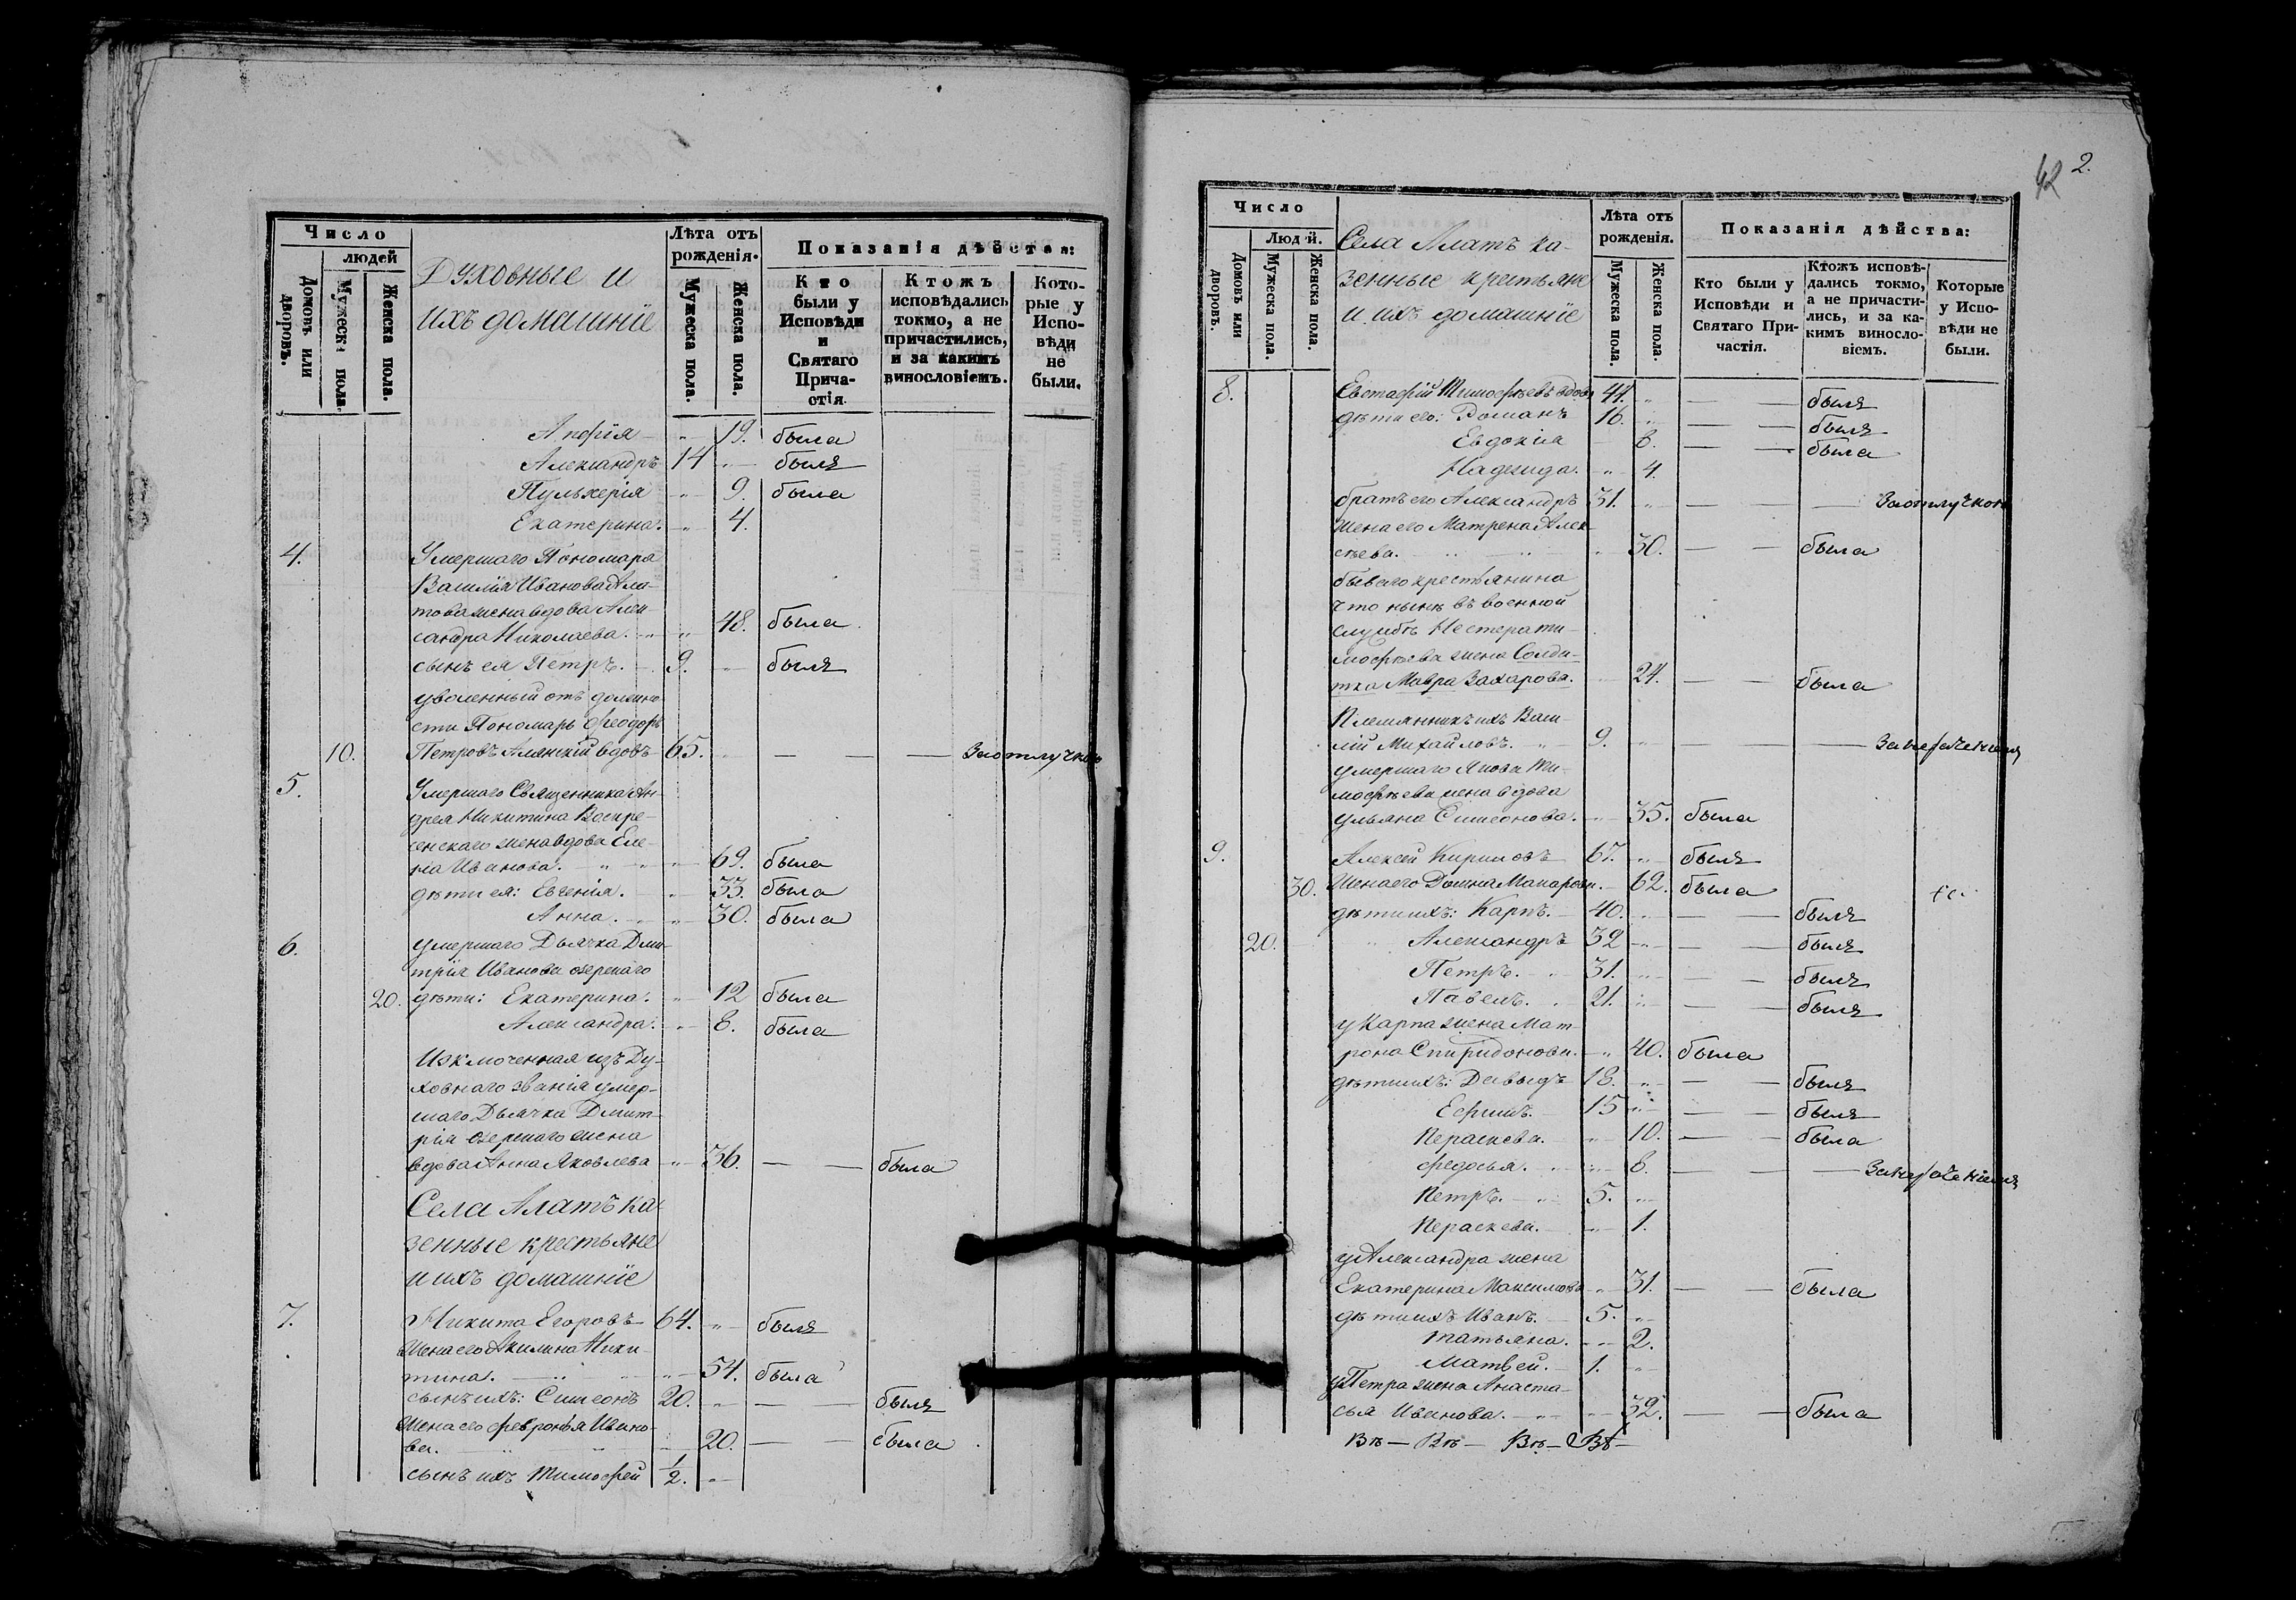 Число
людей
Домовъ или дворовъ.
Мужеска пола.
Женска пола.
Духовные и
ихъ домашніе
Лѣта отъ рожденія.
Мужеска пола.
Женска пола.
Показанія дѣйства:
Кто были у Исповѣди и Святаго Прича-стія.
Ктожъ исповѣдались токмо, а не причастились, и за какимъ винословіемъ.
Кото-рые у Испо-вѣди не были.
Апфія — 19. была
Александръ 14 — былъ
Пульхерія — 9. была
Екатерина. — 4.
4. Умершаго Пономаря
Василія Иванова Ала-
това жена вдова Алек
сандра Николаева. — 48. была
сынъ ея Петръ. — 9. — былъ
уволенный отъ должно
сти Пономарь Феодоръ
10. Петровъ Алянскій вдовъ 65. — — — За отлучкою
5. Умершаго Священника Ан-
дрея Никитина Воскре-
сенскаго жена вдова Еле
на Иванова. — 69. была
дѣти ея: Евгенія. — 33. была
Анна. — 30. была
6. умершаго Дьячка Дми-
трія Иванова озерскаго
20. дѣти: Екатерина. — 12 была
Александра. — 8. была
Изключенная изъ Ду-
ховнаго званія умер-
шаго Дьячка Дмит-
рія озерскаго жена
вдова Анна Яковлева — 36. — — была
Села Алатъ ка
зенные крестьяне
и ихъ домашніе
7. Никита Егоровъ 64. — былъ
Жена его Акилина Ники-
тина. — 54. была
сынъ ихъ: Симеонъ 20. — — — былъ
Жена его Февронья Ивано-
ва. — 20. — — была
сынъ ихъ Тимофей 1/2. —
42 2.
Число
Людей.
Домовъ или дворовъ.
Мужеска пола.
Женска пола.
Села Алатъ ка-
зенные крестьяне
и ихъ домашніе
Лѣта отъ рожденія.
Мужеска пола.
Женска пола.
Показанія дѣйства:
Кто были у Исповѣди и Святаго При-частія.
Ктожъ исповѣ-дались токмо, а не причасти-лись, и за ка-кимъ виносло-віемъ.
Которые у Испо-вѣди не были.
8. Евстафій Тимофѣевъ вдовъ 44. — — былъ
дѣти его: Романъ 16. — — былъ
Евдокія 8. — — была
Надежда. — 4.
братъ его Александръ 31. — — — За отлучкою
жена его Матрена Алек-
сѣева. — 30. — — была
бывшаго крестьянина
что нынѣ въ военной
службѣ Нестера ти-
мофѣева жена Солда-
тка Мавра Захарова. 24. — — была
Племянникъ ихъ Васи-
лій Михайловъ. — 9. — — — За нераченіемъ
умершаго Якова Ти-
мофѣева жена вдова
ульяна Симеонова. — 35. была
9. Алексей Кириловъ 67. — былъ
30. Жена его Домна Макарова. — 62. была
дѣти ихъ: Карпъ. — 40. — — былъ
20. Александръ 32 — — былъ
Петръ. — 31. — — былъ
Павелъ. — 21. — — былъ
у Карпа жена Мат-
рона Спиридонова. — 40. была
дѣти ихъ: Давыдъ 18. — — былъ
Ефимъ. 15 — — былъ
Пераскева. — 10. — — была
Федосья. — 8. — — За нераченіемъ
Петръ. — 5. —
Пераскева. — 1.
у Александра жена
Екатерина Максимова — 31. — — была
дѣти ихъ Иванъ. — 5. —
Татьяна. — 2.
Матвей. — 1. —
у Петра жена Анаста-
сья Иванова. — 32. — — была